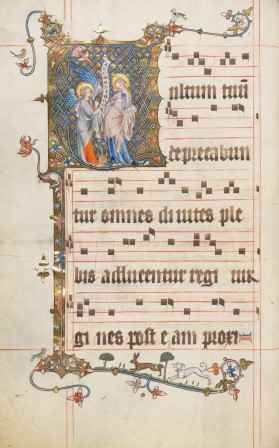 ultum tuū
deprecabun
tur omnes diuites ple
bis adducentur regi uir
gines post eam proxi